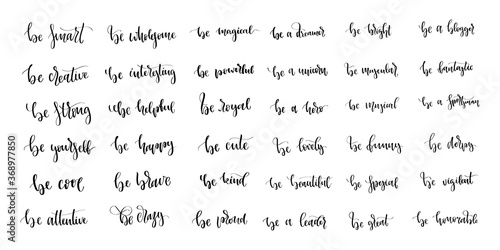 be smart be wholesome be magical be a dreamer be bright be a blogger
be creative be interesting be powerful be a unicorn be muscular be fantastic
be strong be helpful be royal be a hero be musical be a sportsman
be yourself be happy be cute be lovely be funny be
be cool be brave be kind be beautiful be special be vigilant
be attentive be crazy be proud be a leader be great be honorable
368977850